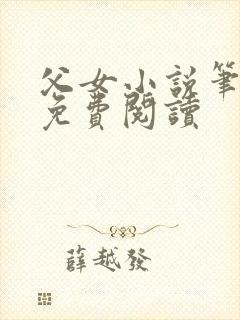 父女小说筆
免費閱讀
薛越發